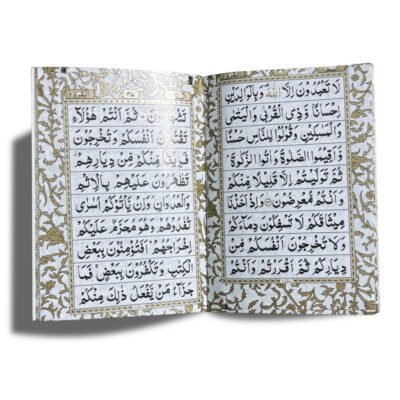 لَا تَعْبُدُوْنَ اِلَّا اللّٰهَ وَبِالْوَالِدَيْنِ
اِحْسَانًا وَّ ذِي الْقُرْبٰى وَالْيَتٰمٰى
وَالْمَسٰكِيْنِ وَقُوْلُوْا لِلنَّاسِ حُسْنًا
وَّ اَقِيْمُوا الصَّلٰوةَ وَ اٰتُوا الزَّكٰوةَ
ثُمَّ تَوَلَّيْتُمْ اِلَّا قَلِيْلًا مِّنْكُمْ
وَ اَنْتُمْ مُّعْرِضُوْنَ وَ اِذْ اَخَذْنَا
مِيْثَاقَكُمْ لَا تَسْفِكُوْنَ دِمَآءَكُمْ
وَ لَا تُخْرِجُوْنَ اَنْفُسَكُمْ مِّنْ
دِيَارِكُمْ ثُمَّ اَقْرَرْتُمْ وَ اَنْتُمْ
تَشْهَدُوْنَ ثُمَّ اَنْتُمْ هٰٓؤُلَآءِ
تَقْتُلُوْنَ اَنْفُسَكُمْ وَ تُخْرِجُوْنَ
فَرِيْقًا مِّنْكُمْ مِّنْ دِيَارِهِمْ
تَظٰهَرُوْنَ عَلَيْهِمْ بِالْاِثْمِ
وَالْعُدْوَانِ وَاِنْ يَّاْتُوْكُمْ اُسٰرٰى
تُفٰدُوْهُمْ وَهُوَ مُحَرَّمٌ عَلَيْكُمْ
اِخْرَاجُهُمْ اَفَتُؤْمِنُوْنَ بِبَعْضِ
الْكِتٰبِ وَتَكْفُرُوْنَ بِبَعْضٍ فَمَا
جَزَآءُ مَنْ يَّفْعَلُ ذٰلِكَ مِنْكُمْ